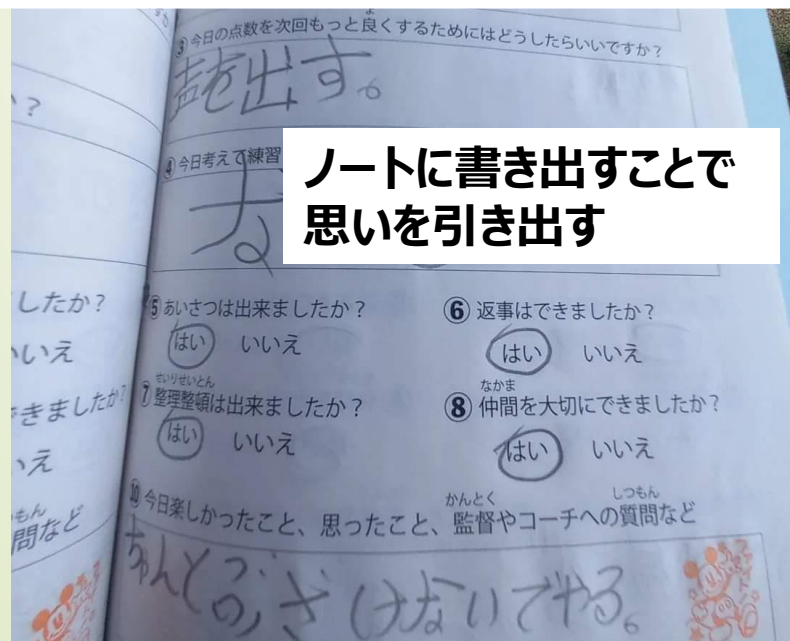 ？
③ 今日の点数を次回もっと良くするためにはどうしたらいいですか？
声を出す。
④ 今日考えて練習
ノートに書き出すことで
思いを引き出す
したか？
いいえ
きましたか？
いえ
問など
⑤ あいさつは出来ましたか？
はい いいえ
⑥ 返事はできましたか？
はい いいえ
⑦ 整理整頓は出来ましたか？
はい いいえ
⑧ 仲間を大切にできましたか？
はい いいえ
⑩ 今日楽しかったこと、思ったこと、監督やコーチへの質問など
ちゃんとふざけないでやる。